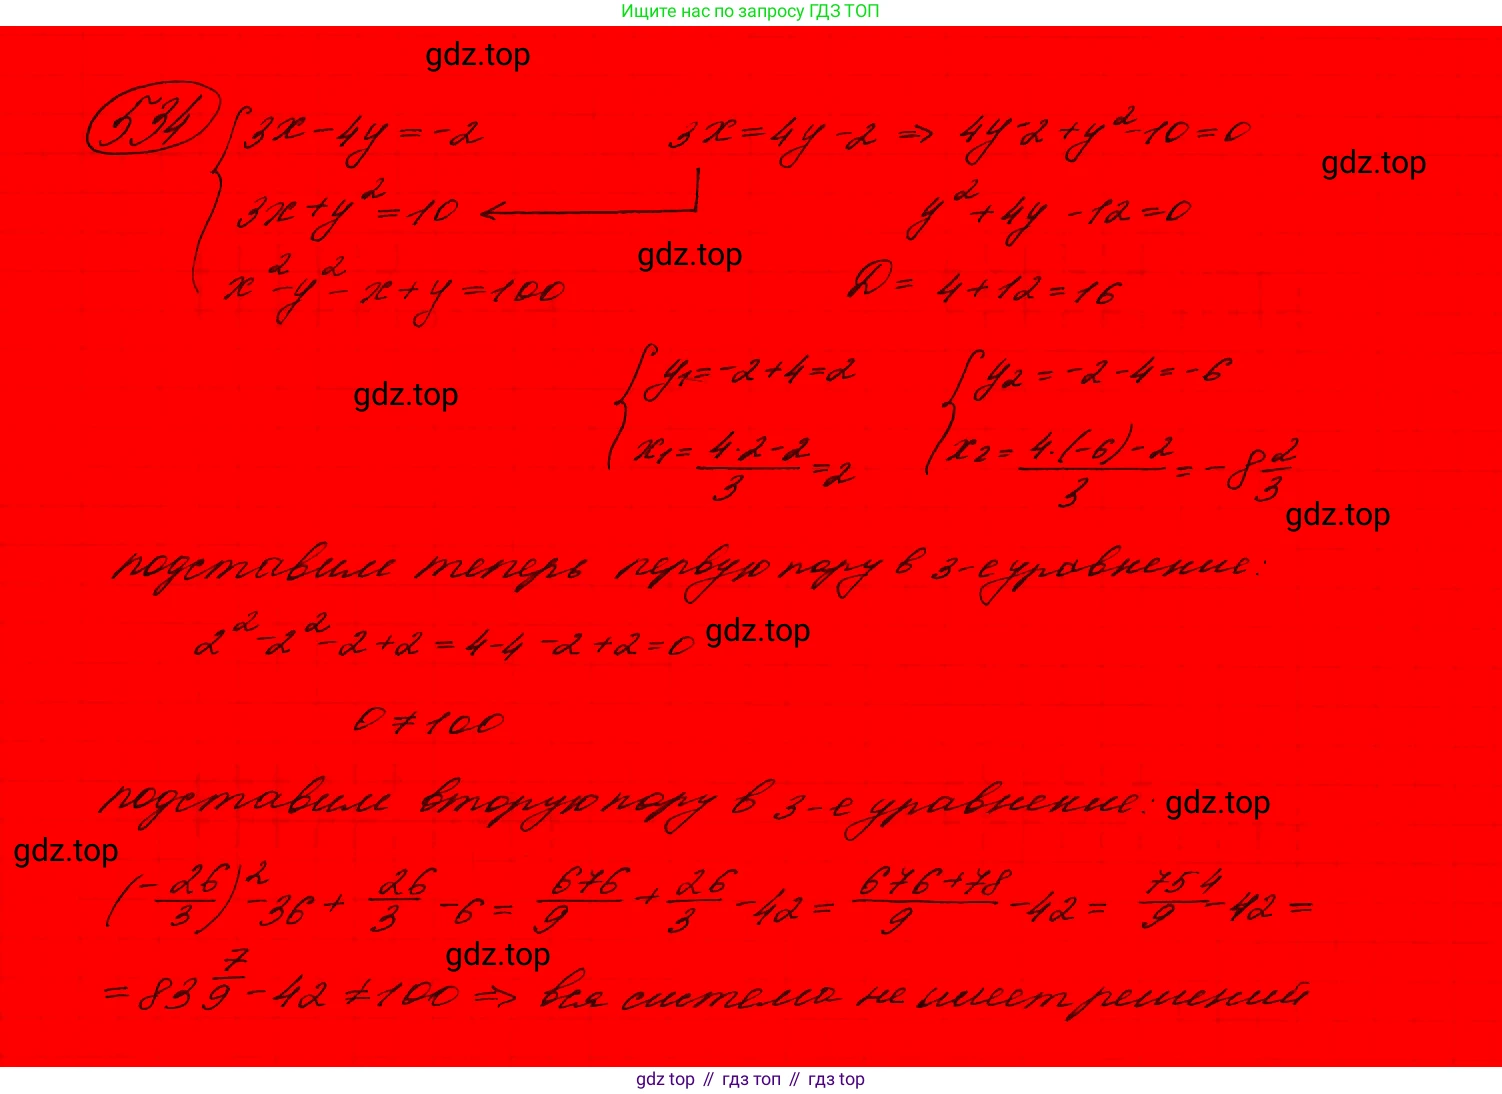 Ищите нас по запросу ГДЗ ТОП
gdz.top
534
3x - 4y = -2
3x = 4y - 2 => 4y - 2 + y² - 10 = 0
gdz.top
3x + y² = 10
y² + 4y - 12 = 0
gdz.top
x² - y² - x + y = 100
D = 4 + 12 = 16
y₁ = -2 + 4 = 2
y₂ = -2 - 4 = -6
gdz.top
x₁ = (4·2-2)/3 = 2
x₂ = (4·(-6)-2)/3 = -8 2/3
gdz.top
подставим теперь первую пару в 3-е уравнение:
2² - 2² - 2 + 2 = 4 - 4 - 2 + 2 = 0
gdz.top
0 ≠ 100
подставим вторую пару в 3-е уравнение:
gdz.top
gdz.top
(-26/3)² - 36 + 26/3 - 6 = 676/9 + 26/3 - 42 = (676+78)/9 - 42 = 754/9 - 42 =
gdz.top
= 83 7/9 - 42 ≠ 100 => вся система не имеет решений
gdz top // гдз топ // гдз top